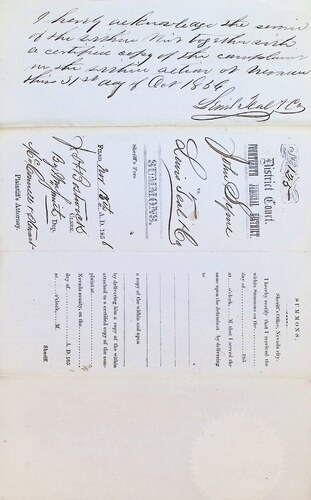 I hereby acknowledge the service
of the within Writ together with
a certified copy of the complaint
in the within action at Nevada
this 31st day of Oct 1856
No.
District Court,
FOURTEENTH JUDICIAL DISTRICT.
John
vs.
Levi
& Co
SUMMONS.
Sheriff's Fees
FILED Nov
A. D. 185 6
CLERK.
By
Dep.
Plaintiff's Attorney.
SUMMONS.
Sheriff's Office, Nevada city.
I hereby certify that I received the
within Summons on the
day of
185
at
o'clock,
M. that I served the
same upon the defendant by delivering
to
a copy of the within and upon
by delivering him a copy of the within
attached to a certified copy of the com-
plaint at
Nevada county, on the
day of
A. D. 185
at
o'clock,
M.
Sheriff.